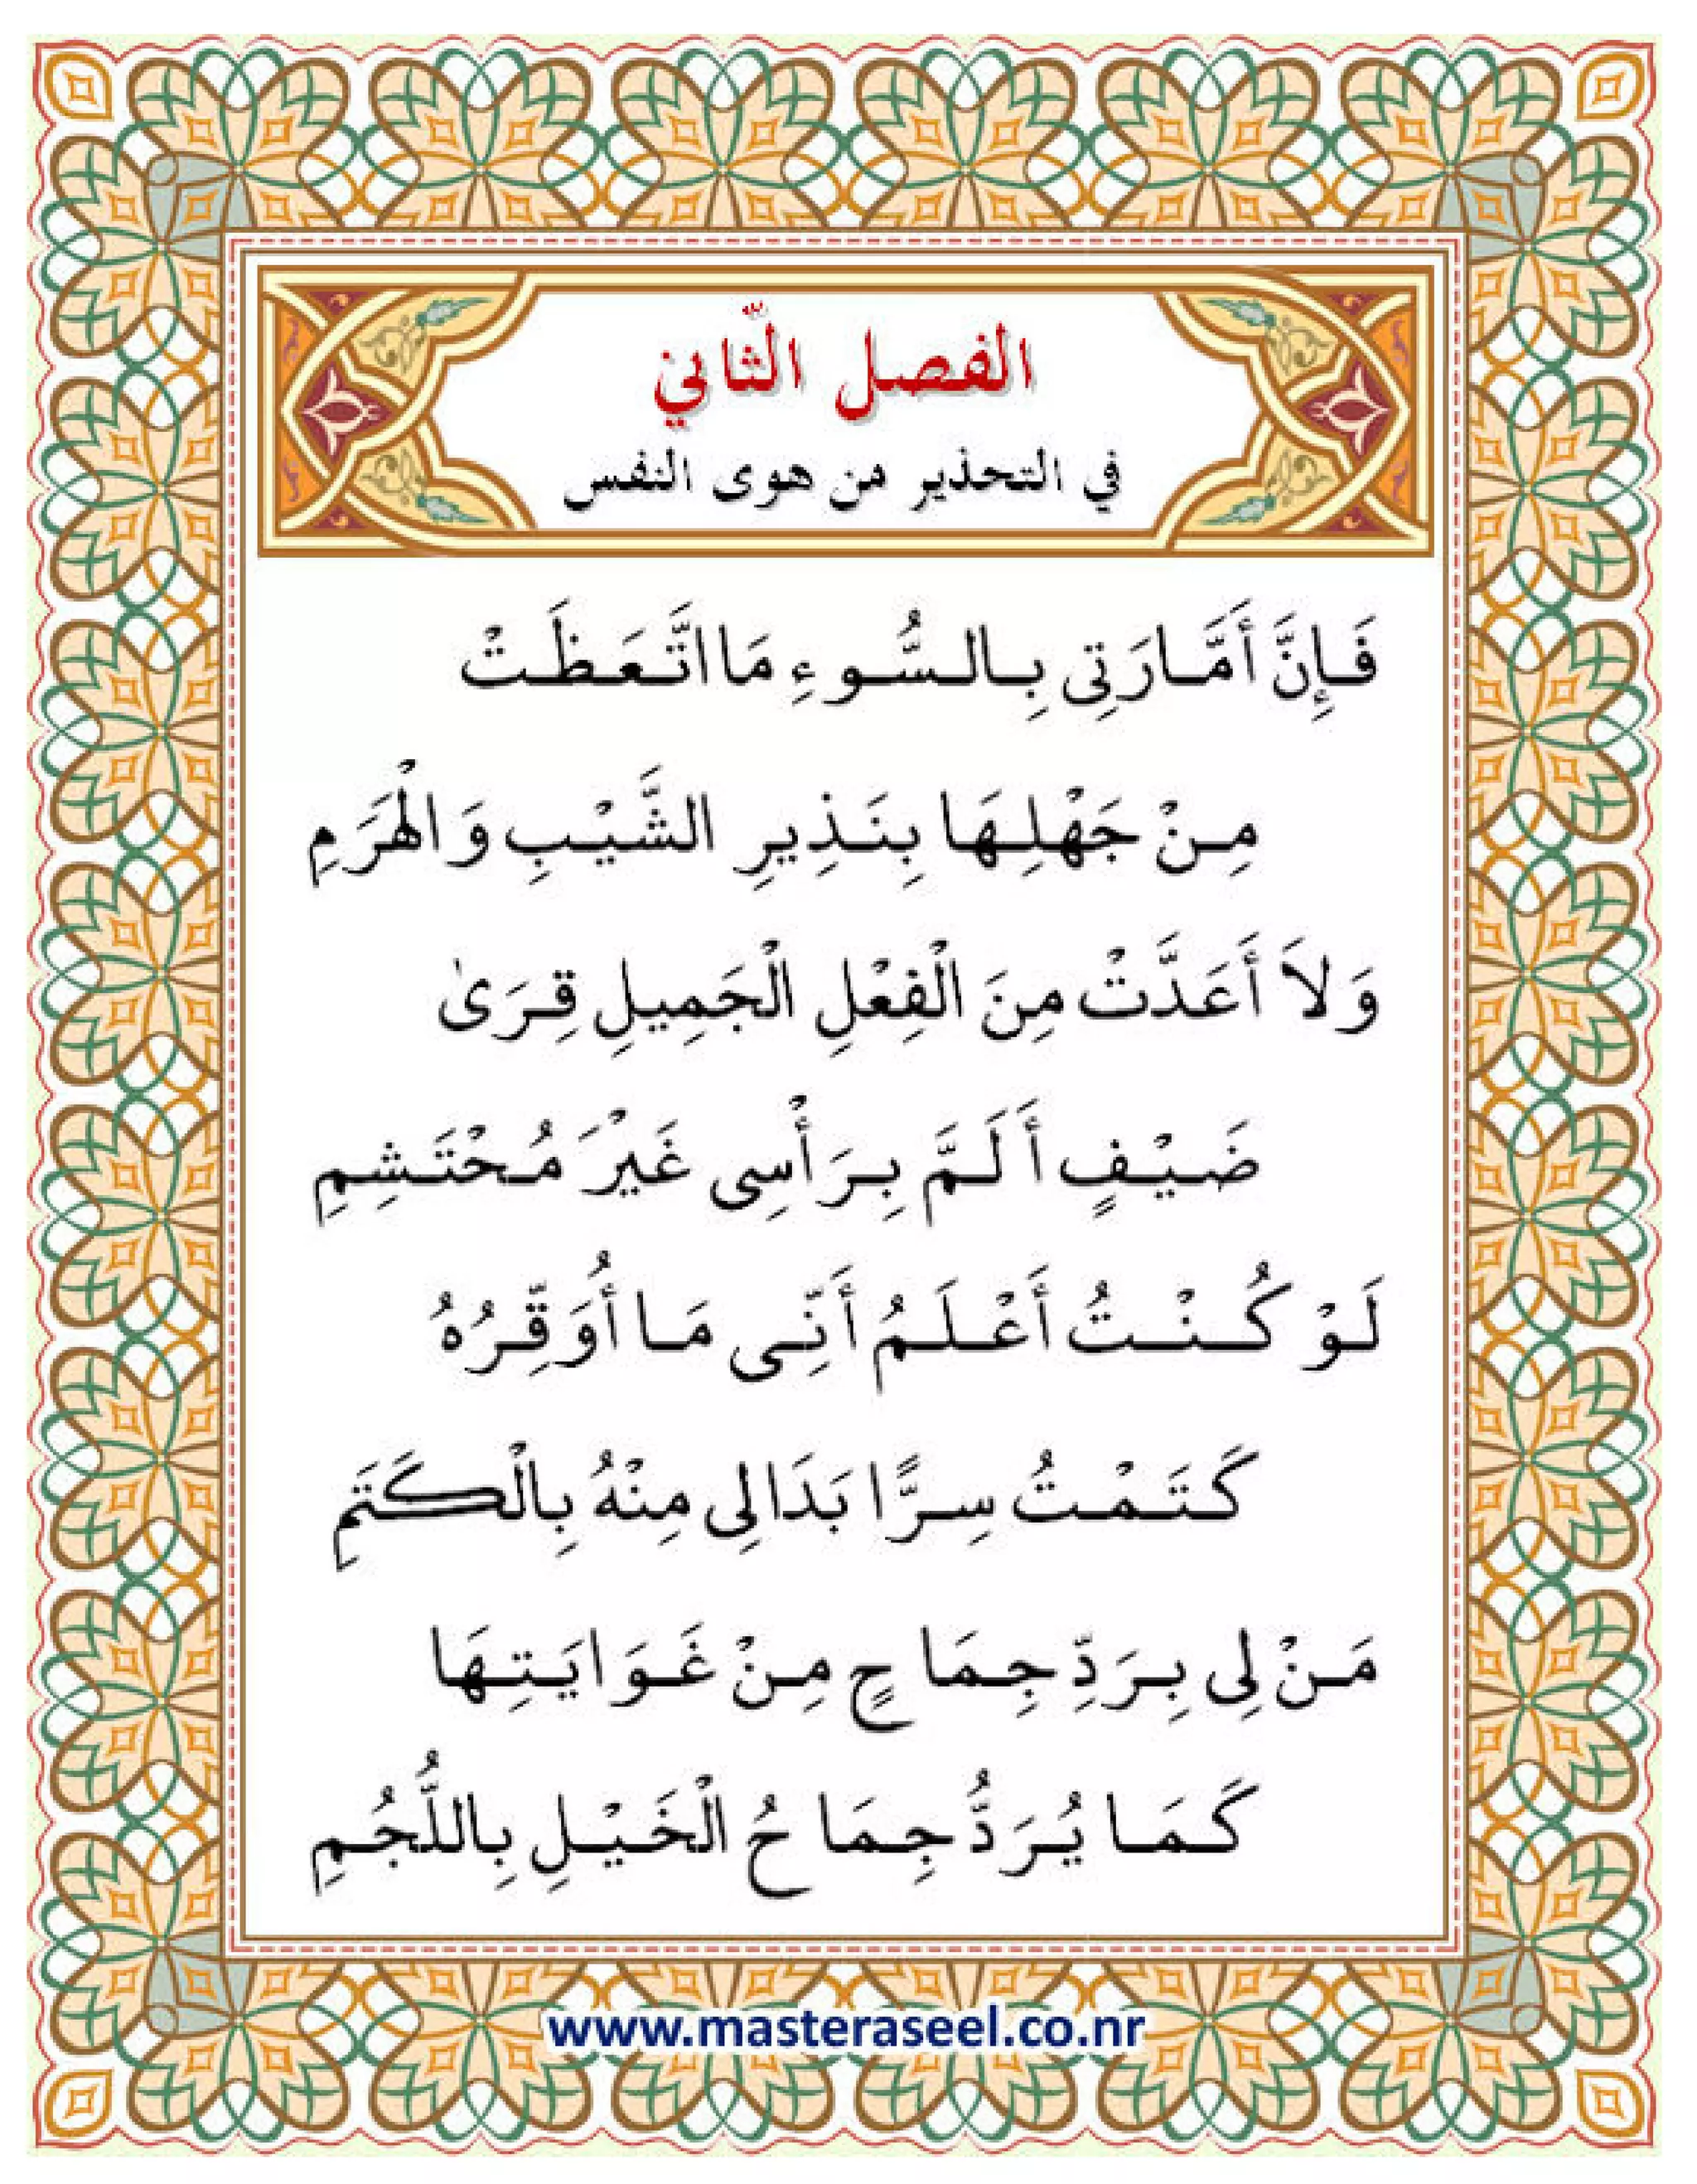 الفصل الثّاني
في التحذير من هوى النفس
فَإِنَّ أَمَّارَتِى بِالسُّوءِ مَا اتَّعَظَتْ
مِنْ جَهْلِهَا بِنَذِيرِ الشَّيْبِ وَالْهَرَمِ
وَلاَ أَعَدَّتْ مِنَ الْفِعْلِ الْجَمِيلِ قِرَىٰ
ضَيْفٍ أَلَمَّ بِرَأْسِى غَيْرَ مُحْتَشِمِ
لَوْ كُنْتُ أَعْلَمُ أَنِّى مَا أُوَقِّرُهُ
كَتَمْتُ سِرًّا بَدَالِى مِنْهُ بِالْكَتَمِ
مَنْ لِى بِرَدِّ جِمَاحٍ مِنْ غَوَايَتِهَا
كَمَا يُرَدُّ جِمَاحُ الْخَيْلِ بِاللُّجُمِ
www.masteraseel.co.nr